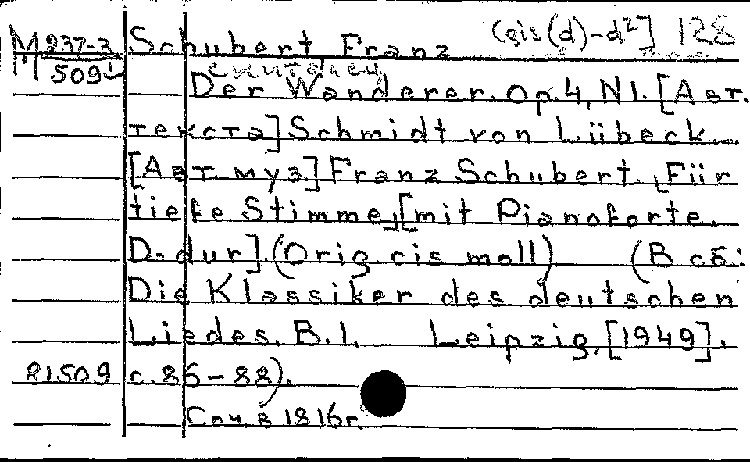 М 937-3 Schubert Franz (gis(d)-d²] 128
509
Der Wanderer. Op. 4, N1. [Авт.
текста] Schmidt von Lübeck.
[Авт муз] Franz Schubert. [Für
tiefe Stimme,] [mit Pianoforte.
D-dur]. (Orig. cis moll) (В сб:
Die Klassiker des deutschen
Liedes. B.1. Leipzig, [1949].
81.509 с. 86-88).
Соч. в 1816г.